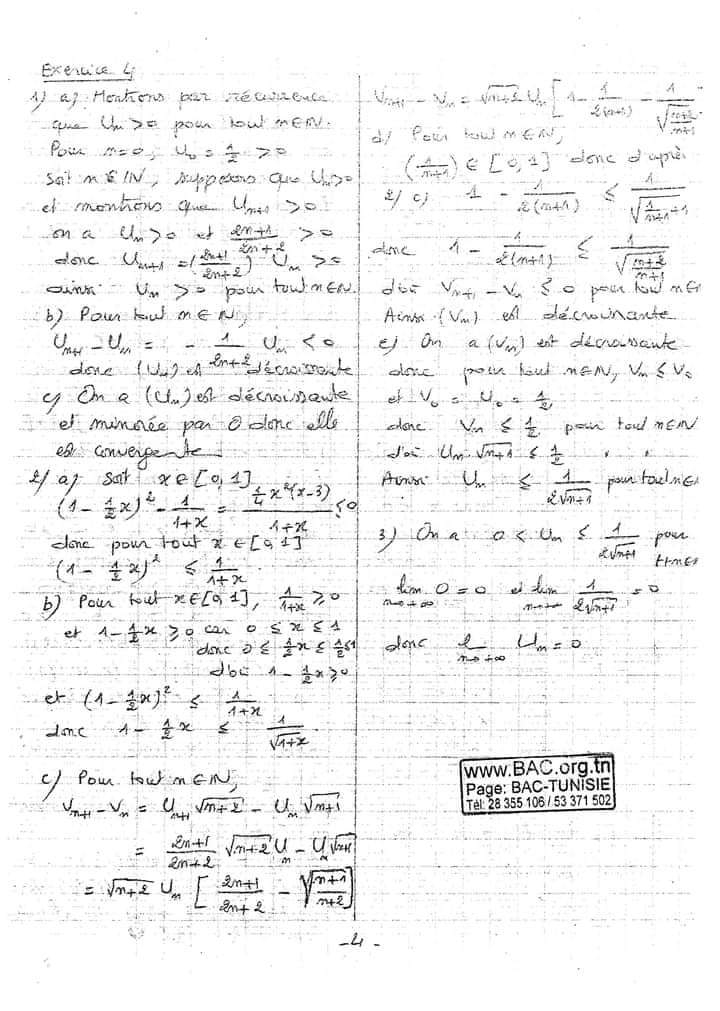 Exercice 4
1) a) Montrons par récurrence
que Un > 0 pour tout n∈IN.
Pour n=0, U0 = 1/2 > 0
Soit n∈IN, supposons que Un>0
et montrons que Un+1 > 0
on a Un>0 et (2n+1)/(2n+2) > 0
donc Un+1 = ((2n+1)/(2n+2)) Un > 0
ainsi Un > 0 pour tout n∈IN.
b) Pour tout n∈IN,
Un+1 - Un = - 1/(2n+2) Un < 0
donc (Un) est décroissante
c) On a (Un) est décroissante
et minorée par 0 donc elle
est convergente
2/ a) Soit x∈[0,1]
(1 - 1/2 x)² - 1/(1+x) = (1/4 x²(x-3))/(1+x) ≤ 0
donc pour tout x∈[0,1]
(1 - 1/2 x)² ≤ 1/(1+x)
b) Pour tout x∈[0,1], 1/(1+x) ≥ 0
et 1 - 1/2 x ≥ 0 car 0 ≤ x ≤ 1
donc 0 ≤ 1/2 x ≤ 1/2 ≤ 1
d'où 1 - 1/2 x ≥ 0
et (1 - 1/2 x)² ≤ 1/(1+x)
donc 1 - 1/2 x ≤ 1/√(1+x)
c) Pour tout n∈IN,
Vn+1 - Vn = Un+1 √(n+2) - Un √(n+1)
= (2n+1)/(2n+2) √(n+2) Un - Un √(n+1)
= √(n+2) Un [ (2n+1)/(2n+2) - √((n+1)/(n+2)) ]
Vn+1 - Vn = √(n+2) Un [ 1 - 1/(2(n+1)) - 1/√((n+2)/(n+1))
d) Pour tout n∈IN,
(1/(n+1)) ∈ [0,1] donc d'après
2/ c) 1 - 1/(2(n+1)) ≤ 1/√(1/(n+1) +1)
donc 1 - 1/(2(n+1)) ≤ 1/√((n+2)/(n+1))
d'où Vn+1 - Vn ≤ 0 pour tout n∈
Ainsi (Vn) est décroissante
e) On a (Vn) est décroissante
donc pour tout n∈IN, Vn ≤ V0
et V0 = U0 = 1/2,
donc Vn ≤ 1/2 pour tout n∈IN
d'où Un √(n+1) ≤ 1/2 " "
Ainsi Un ≤ 1/(2√(n+1)) pour tout n∈
3) On a 0 < Un ≤ 1/(2√(n+1)) pour
tt n∈
lim n→+∞ 0 = 0 et lim n→+∞ 1/(2√(n+1)) = 0
donc lim n→+∞ Un = 0
www.BAC.org.tn
Page: BAC-TUNISIE
Tél: 28 355 106 / 53 371 502
-4-